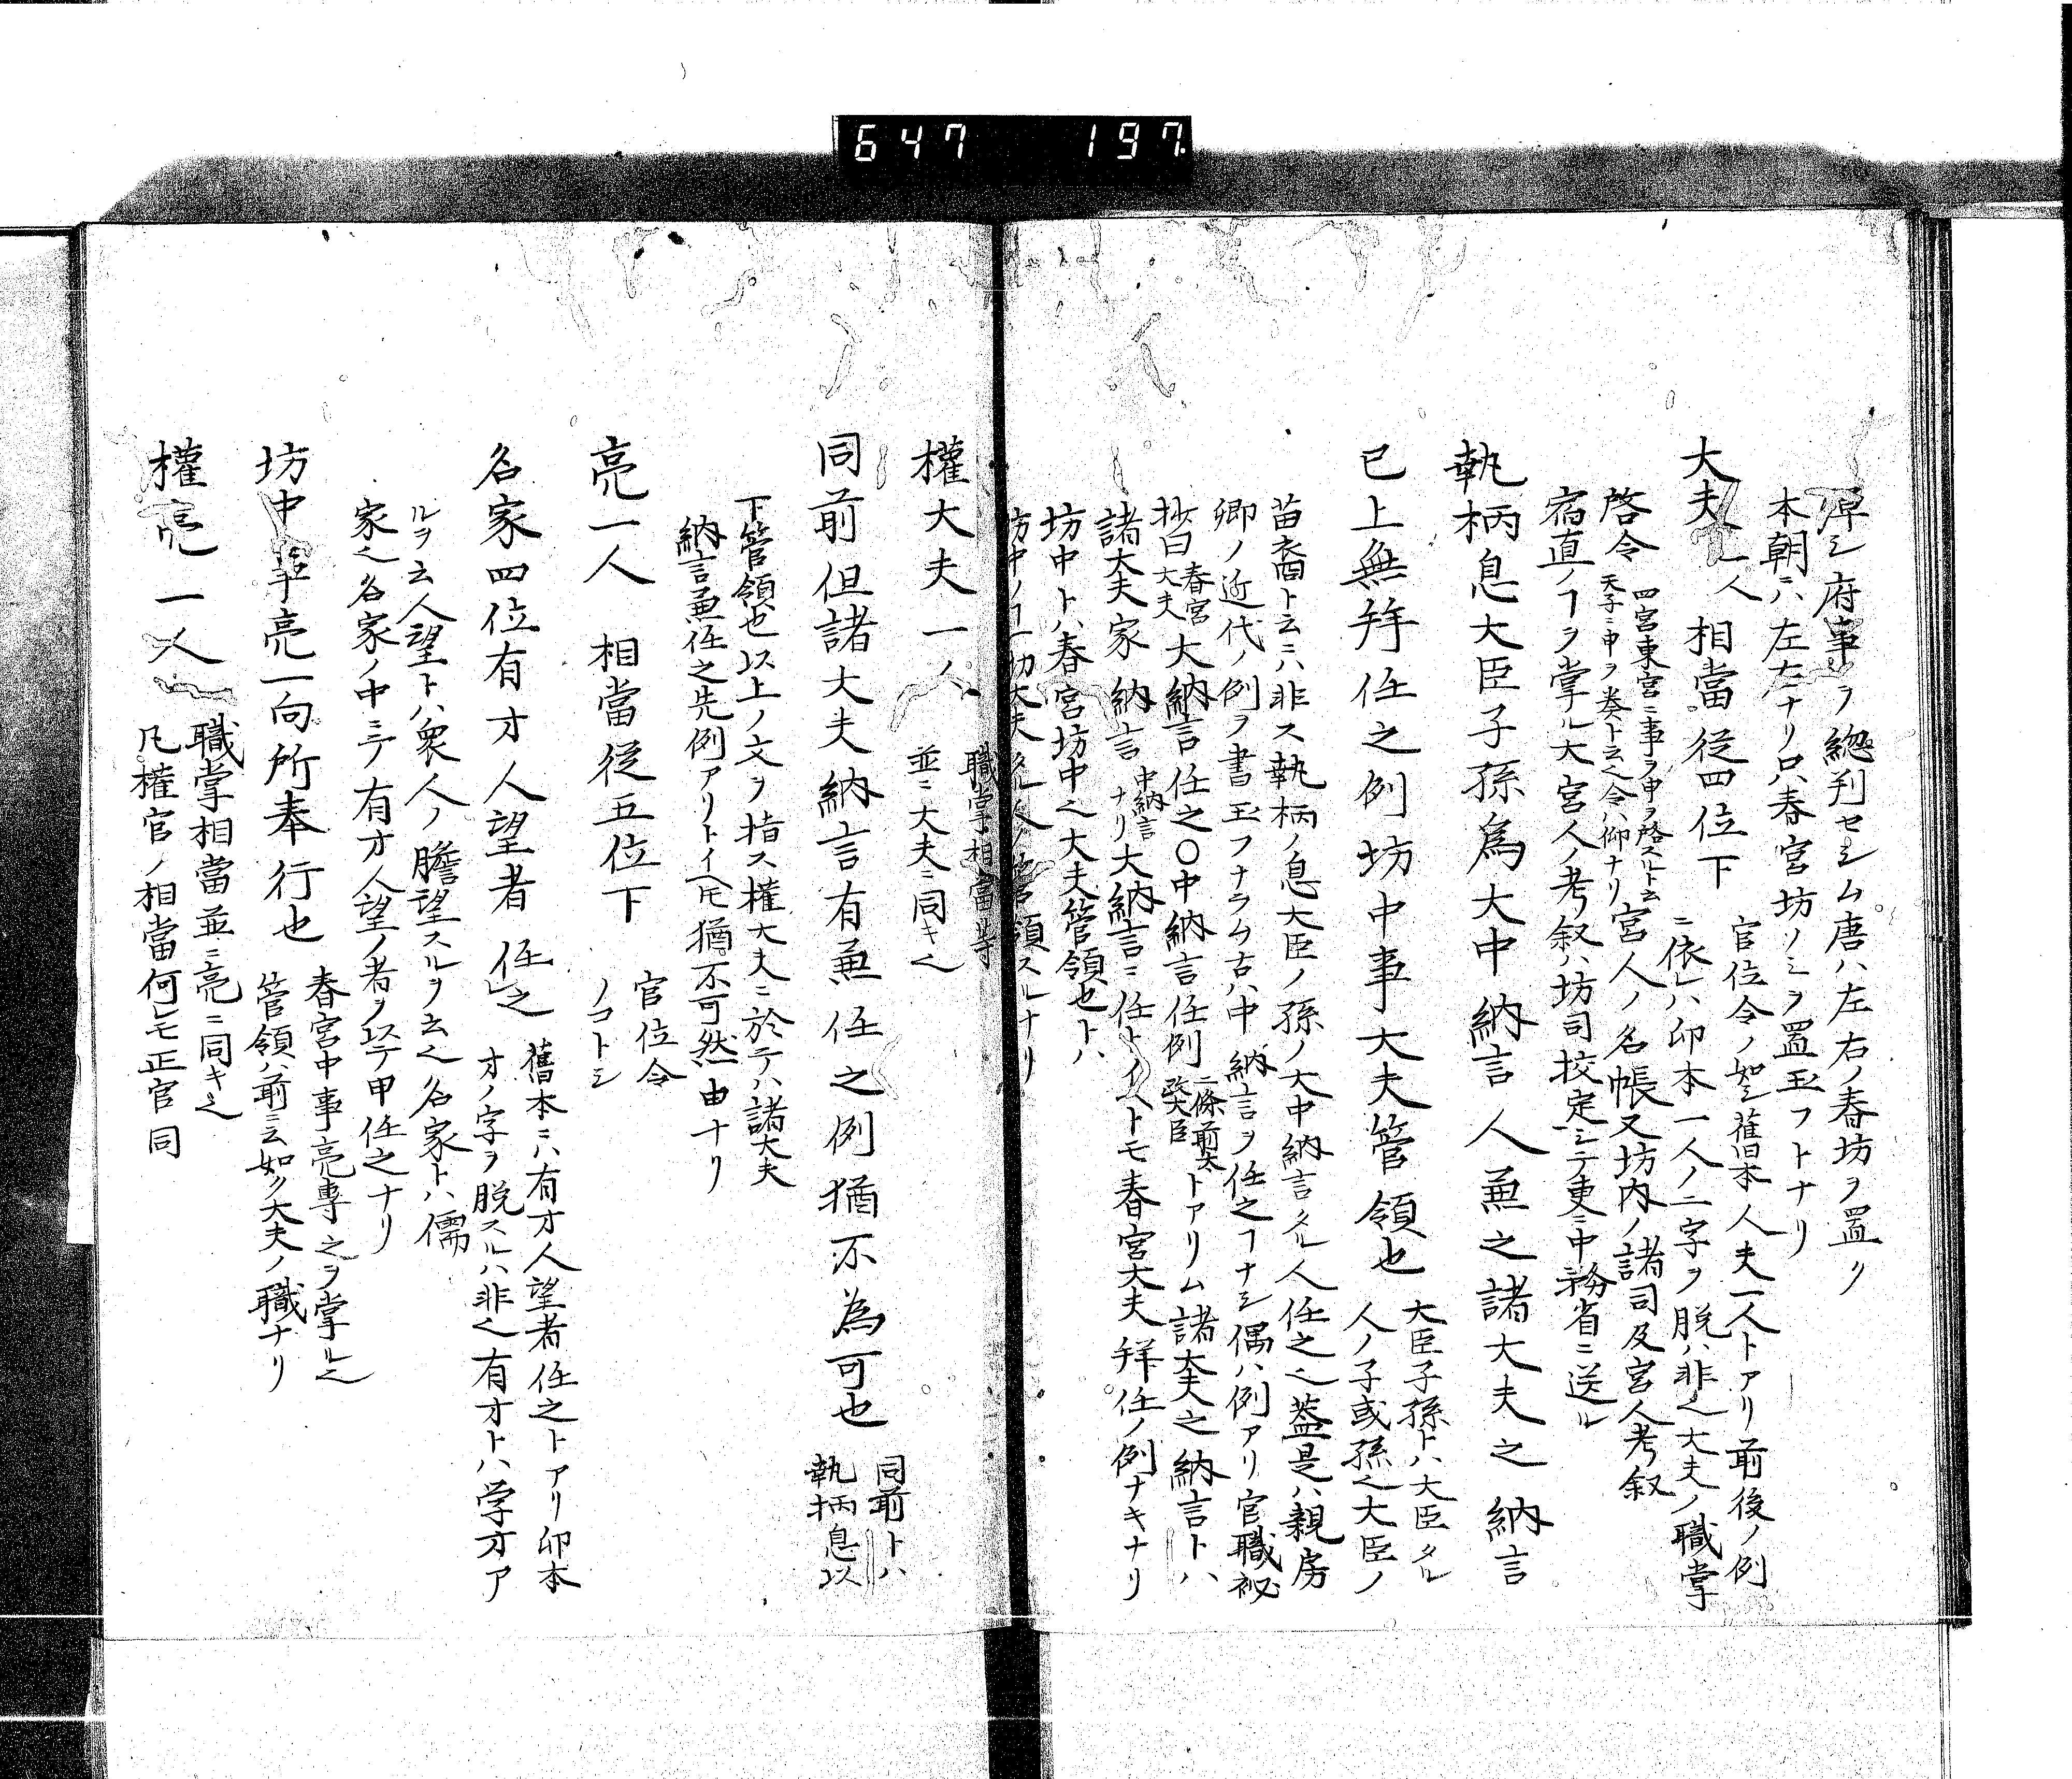 647 197
府事ヲ總判セシム唐ハ左右ノ春坊ヲ置リ
本朝ニハ左右ナリ只春宮坊ノミヲ置玉フトナリ
大夫一人 相當從四位下
官位令ノ如シ舊本人夫一人トアリ前後ノ例
ニ依レハ印本一人ノ二字ヲ脱ハ非也大夫ノ職掌
啓令
四宮東宮ニ事ヲ申ヲ啓スルト云
天子ニ申ヲ奏ト云也令ハ仰ナリ
宮人ノ名帳又坊内ノ諸司及宮人考叙
宿直ノヿヲ掌ル大宮人ノ考叙ハ坊司校定シテ更ニ中務省ニ送ル
執柄息大臣子孫為大中納言人兼之諸大夫之納言
已上無拜任之例坊中事大夫管領也
大臣子孫トハ大臣タル
人ノ子或孫也大臣ノ
苗裔ト云ニハ非ス執柄ノ息大臣ノ孫ノ大中納言タル人任之也蓋是ハ親房
卿ノ近代ノ例ヲ書玉フナラム古ハ中納言ヲ任之ヿナシ偶ハ例アリ官職秘
抄曰
春宮
大夫
大納言任之〇中納言任例
トアリム諸大夫之納言トハ
諸大夫家納言
中納言
ナリ
大納言ニ任トイヘトモ春宮大夫拜任ノ例ナキナリ
坊中トハ春宮坊中也大夫管領也トハ
坊中ノヿ一切大夫タル人ノ管領スルナリ
權大夫一人
職掌相當等
並ニ大夫ニ同キ也
同前但諸大夫納言有兼任之例猶不為可也
同前トハ
執柄息以
下管領也以上ノ文ヲ指ス權大夫ニ於テハ諸大夫
納言兼任之先例アリトイヘ𪜈猶不可然由ナリ
亮一人 相當從五位下
官位令
ノコトシ
名家四位有才人望者任之
舊本ニハ有才人望者任之トアリ印本
才ノ字ヲ脱スルハ非也有才トハ学才ア
ルヲ云人望トハ衆人ノ瞻望スルヲ云也名家トハ儒
家也名家ノ中ニテ有才人望ノ者ヲ以テ甲任之ナリ
坊中事亮一向所奉行也
春宮中事亮専之ヲ掌ル也
管領ハ前ニ云如ク大夫ノ職ナリ
權亮一人
職掌相當並ニ亮ニ同キ也
凡權官ノ相當何レモ正官同